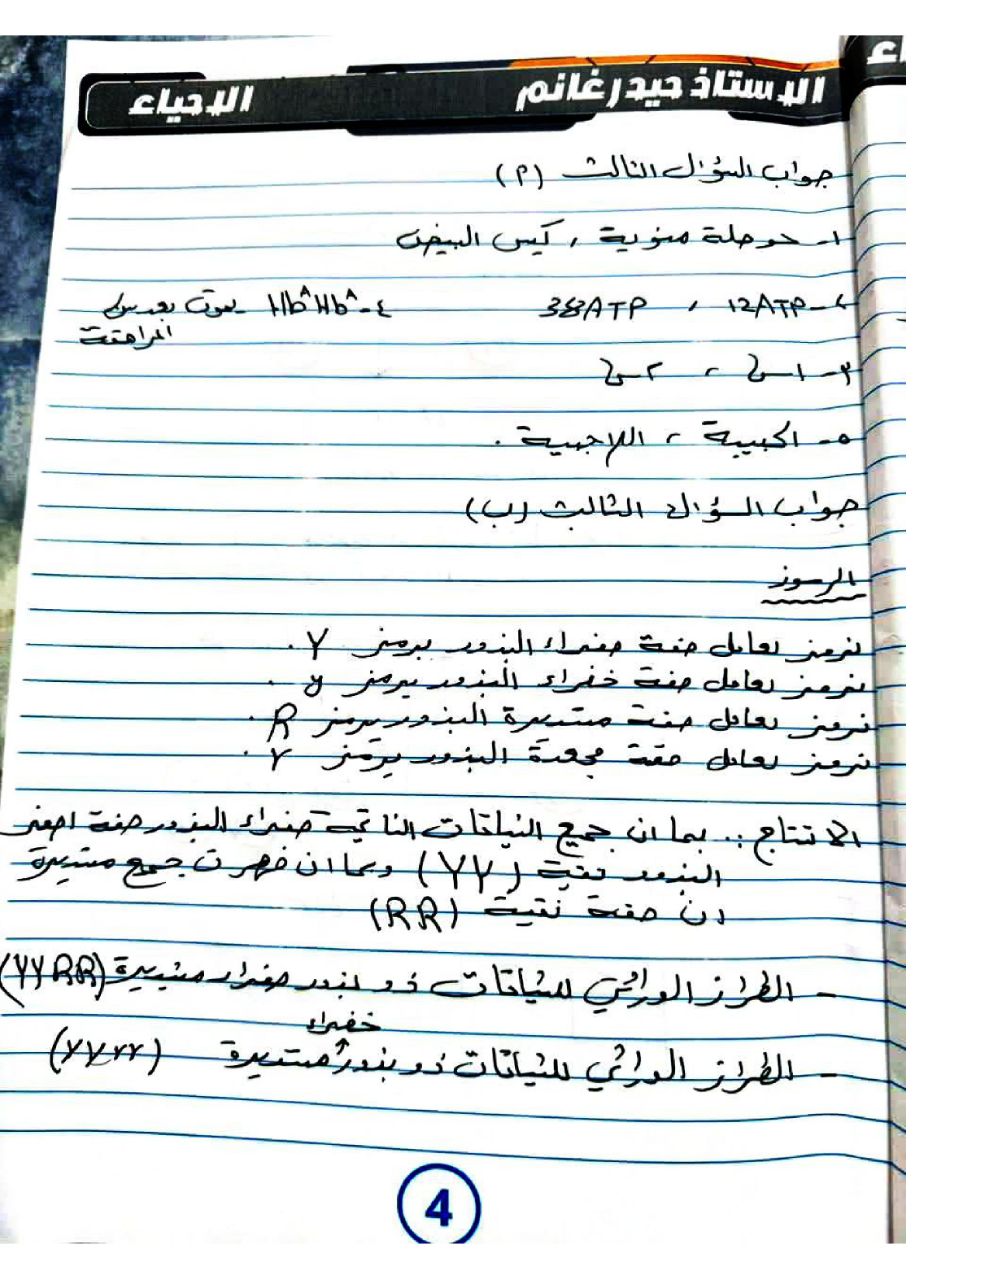 اء
الاستاذ حيدر غانم الاحياء
جواب السؤال الثالث (م)
١- حوصلة منوية ، كيس البيض
٢- 12ATP ، 38ATP ٤- HbᴬHbᴬ يموت بعد سن
المراهقة
٣- ١س ، ٢س
٥- الحبيبة ، اللاحبيبة .
جواب السؤال الثالث (ب)
الرموز
نرمز لعامل صفة صفراء البذور برمز Y .
نرمز لعامل صفة خضراء البذور برمز y .
نرمز لعامل صفة مستديرة البذور برمز R .
نرمز لعامل صفة مجعدة البذور برمز r .
الانتاج .. بما ان جميع النباتات الناتجة صفراء البذور صفة اصفر
البذور نقية (YY) وبما ان ظهرت جميع مستديرة
اذن صفة نقية (RR)
- الطراز الوراثي للنباتات ذو بذور صفراء مستديرة (YYRR)
خضراء
- الطراز الوراثي للنباتات ذو بذور مستديرة (yyrr)
4